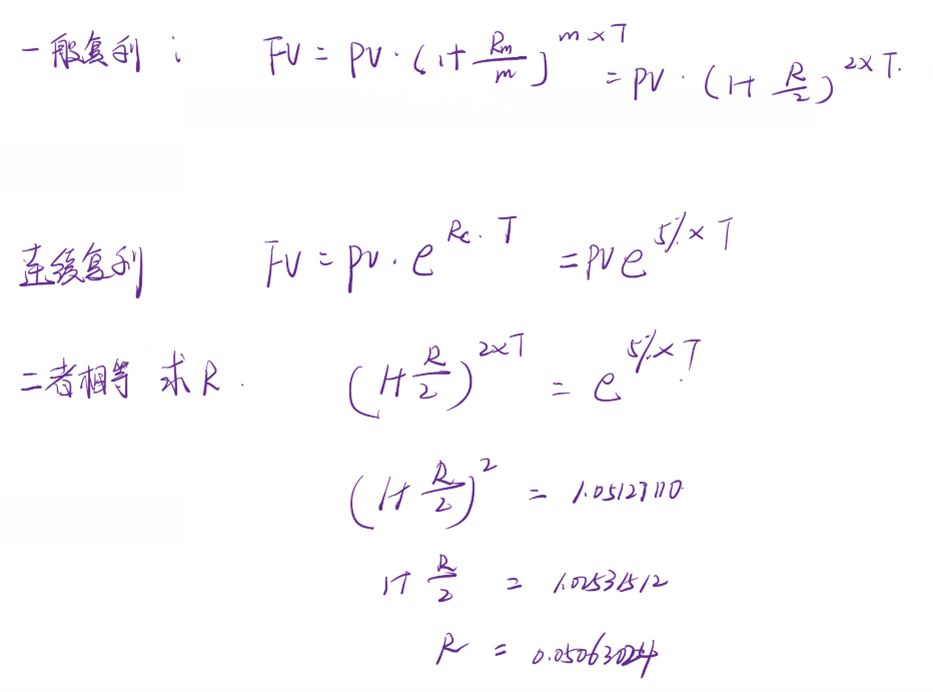 一般复利： FV = PV · (1+ Rm/m)^(m×T) = PV · (1+ R/2)^(2×T).
连续复利 FV = PV · e^(Rc·T) = PV e^(5%×T)
二者相等 求R. (1+ R/2)^(2×T) = e^(5%×T)
(1+ R/2)^2 = 1.05127110
1+ R/2 = 1.02531512
R = 0.05063024